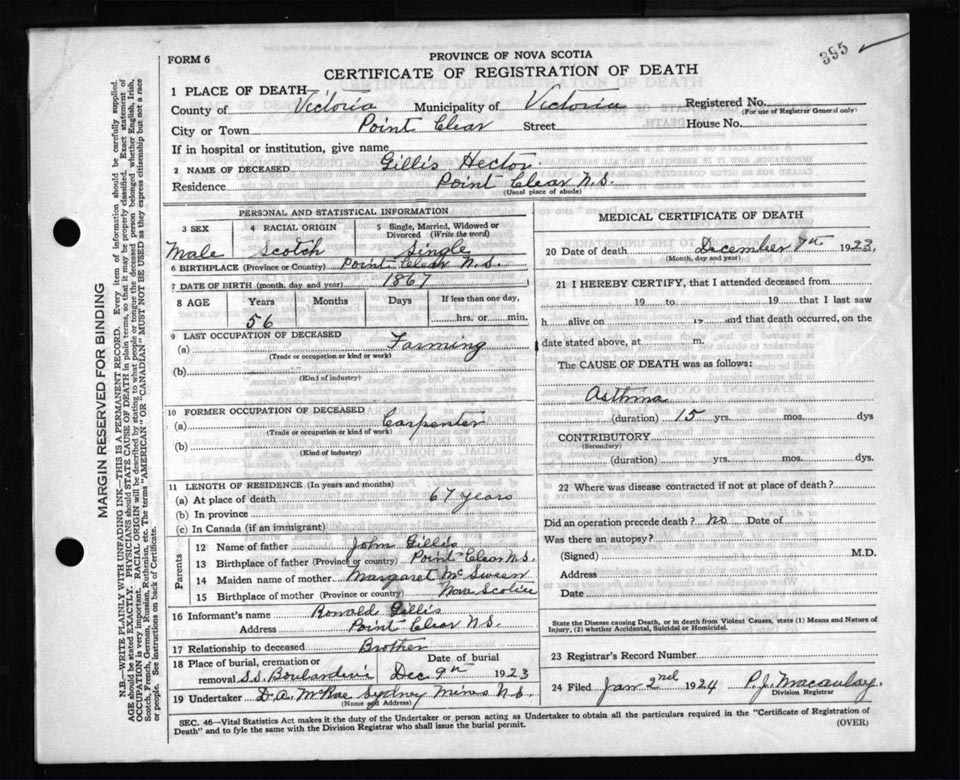 395
FORM 6
PROVINCE OF NOVA SCOTIA
CERTIFICATE OF REGISTRATION OF DEATH
1 PLACE OF DEATH
County of Victoria Municipality of Victoria Registered No.
(For use of Registrar General only)
City or Town Point Clear Street House No.
If in hospital or institution, give name
2 NAME OF DECEASED Gillis Hector
Residence Point Clear N.S.
(Usual place of abode)
PERSONAL AND STATISTICAL INFORMATION
3 SEX 4 RACIAL ORIGIN 5 Single, Married, Widowed or Divorced (Write the word)
Male Scotch Single
6 BIRTHPLACE (Province or Country) Point Clear N.S.
7 DATE OF BIRTH (month, day and year) 1867
8 AGE Years Months Days If less than one day,
56 hrs. or min.
9 LAST OCCUPATION OF DECEASED
(a) Farming
(Trade or occupation or kind of work)
(b)
(Kind of industry)
10 FORMER OCCUPATION OF DECEASED
(a) Carpenter
(Trade or occupation or kind of work)
(b)
(Kind of industry)
11 LENGTH OF RESIDENCE (In years and months)
(a) At place of death 67 years
(b) In province
(c) In Canada (if an immigrant)
Parents
12 Name of father John Gillis
13 Birthplace of father (Province or country) Point Clear N.S.
14 Maiden name of mother Margaret McSween
15 Birthplace of mother (Province or country) Nova Scotia
16 Informant's name Ronald Gillis
Address Point Clear N.S.
17 Relationship to deceased Brother
18 Place of burial, cremation or Date of burial
removal S.S. Boulardrie Dec 9th 1923
19 Undertaker D.A. McRae Sydney Mines N.S.
(Name and Address)
MEDICAL CERTIFICATE OF DEATH
20 Date of death December 7th 1923
(Month, day and year)
21 I HEREBY CERTIFY, that I attended deceased from
19 to 19 that I last saw
h alive on 19 and that death occurred, on the
date stated above, at m.
The CAUSE OF DEATH was as follows:
Asthma
(duration) 15 yrs. mos. dys
CONTRIBUTORY
(Secondary)
(duration) yrs. mos. dys.
22 Where was disease contracted if not at place of death?
Did an operation precede death? no Date of
Was there an autopsy?
(Signed) M.D.
Address
Date
State the Disease causing Death, or in death from Violent Causes, state (1) Means and Nature of
Injury, (2) whether Accidental, Suicidal or Homicidal.
23 Registrar's Record Number
24 Filed Jan 2nd 1924 P.J. Macaulay.
Division Registrar
SEC. 46—Vital Statistics Act makes it the duty of the Undertaker or person acting as Undertaker to obtain all the particulars required in the "Certificate of Registration of
Death" and to fyle the same with the Division Registrar who shall issue the burial permit.
(OVER)
MARGIN RESERVED FOR BINDING
N.B.—WRITE PLAINLY WITH UNFADING INK—THIS IS A PERMANENT RECORD. Every item of information should be carefully supplied.
AGE should be stated EXACTLY. PHYSICIANS should STATE CAUSE OF DEATH in plain terms, so that it may be properly classified. Exact statement of
OCCUPATION is very important. RACIAL ORIGIN will be described by stating to what people or tongue the deceased person belonged whether English, Irish,
Scotch, French, German, Russian, Ruthenian, etc. The terms "AMERICAN" OR "CANADIAN" MUST NOT BE USED as they express citizenship but not a race
or people. See instructions on back of Certificate.